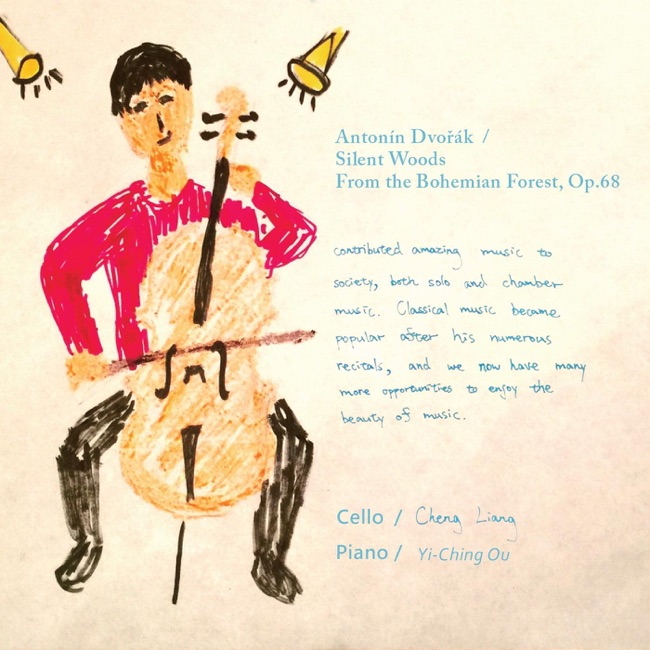 Antonín Dvořák /
Silent Woods
From the Bohemian Forest, Op.68
contributed amazing music to
society, both solo and chamber
music. Classical music became
popular after his numerous
recitals, and we now have many
more opportunities to enjoy the
beauty of music.
Cello / Cheng Liang
Piano / Yi-Ching Ou